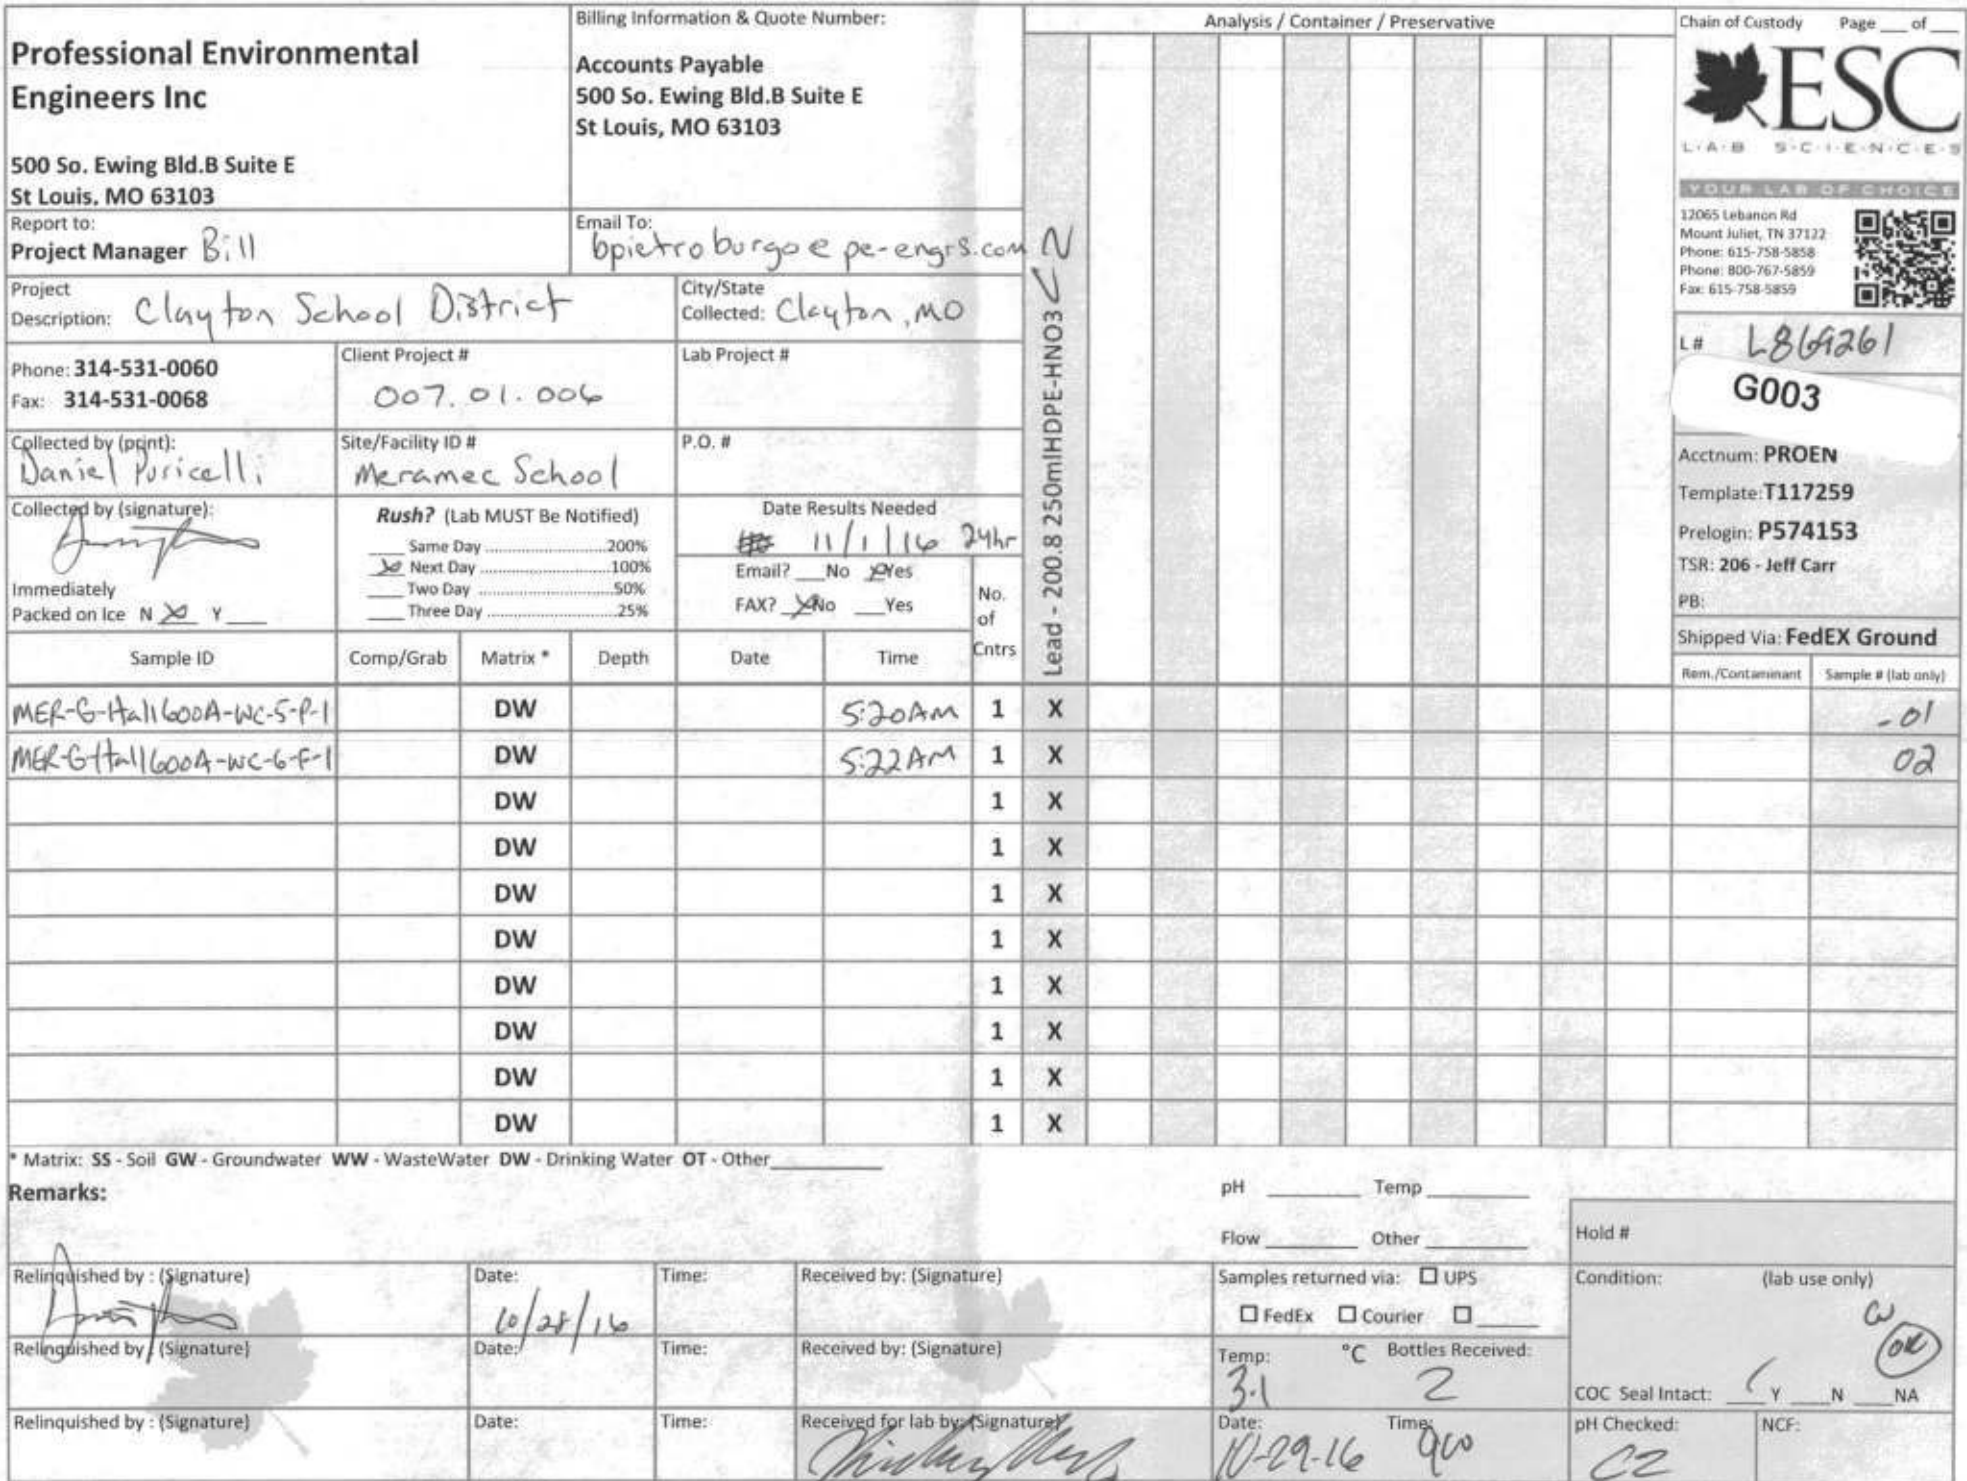 Professional Environmental
Engineers Inc
500 So. Ewing Bld.B Suite E
St Louis, MO 63103
Billing Information & Quote Number:
Accounts Payable
500 So. Ewing Bld.B Suite E
St Louis, MO 63103
Analysis / Container / Preservative
Chain of Custody Page ___ of ___
ESC
L·A·B S·C·I·E·N·C·E·S
YOUR LAB OF CHOICE
12065 Lebanon Rd
Mount Juliet, TN 37122
Phone: 615-758-5858
Phone: 800-767-5859
Fax: 615-758-5859
Report to:
Project Manager Bill
Email To:
bpietroburgo@pe-engrs.com
Project
Description: Clayton School District
City/State
Collected: Clayton, MO
Phone: 314-531-0060
Fax: 314-531-0068
Client Project #
007.01.006
Lab Project #
L# L869261
G003
Collected by (print):
Daniel Puricelli
Site/Facility ID #
Meramec School
P.O. #
Acctnum: PROEN
Template: T117259
Prelogin: P574153
TSR: 206 - Jeff Carr
PB:
Shipped Via: FedEX Ground
Collected by (signature):
Immediately
Packed on Ice N X Y ___
Rush? (Lab MUST Be Notified)
___ Same Day ........ 200%
X Next Day ........ 100%
___ Two Day ........ 50%
___ Three Day ........ 25%
Date Results Needed
11/1/16 24hr
Email? ___No X Yes
FAX? X No ___Yes
No.
of
Cntrs
Lead - 200.8 250mlHDPE-HNO3
Sample ID Comp/Grab Matrix * Depth Date Time Rem./Contaminant Sample # (lab only)
MER-G-Hall600A-WC-5-P-1 DW 5:20AM 1 X -01
MER-G-Hall600A-WC-6-F-1 DW 5:22AM 1 X 02
DW 1 X
DW 1 X
DW 1 X
DW 1 X
DW 1 X
DW 1 X
DW 1 X
DW 1 X
* Matrix: SS - Soil GW - Groundwater WW - WasteWater DW - Drinking Water OT - Other
Remarks:
pH ___ Temp ___
Flow ___ Other ___
Hold #
Relinquished by : (Signature)
Date:
10/28/16
Time:
Received by: (Signature)
Samples returned via: ☐ UPS
☐ FedEx ☐ Courier ☐ ___
Condition: (lab use only)
OK
Relinquished by : (Signature)
Date:
Time:
Received by: (Signature)
Temp: °C
3.1
Bottles Received:
2
COC Seal Intact: ___Y ___N ___NA
Relinquished by : (Signature)
Date:
Time:
Received for lab by: (Signature)
Date:
10-29-16
Time:
900
pH Checked:
NCF: